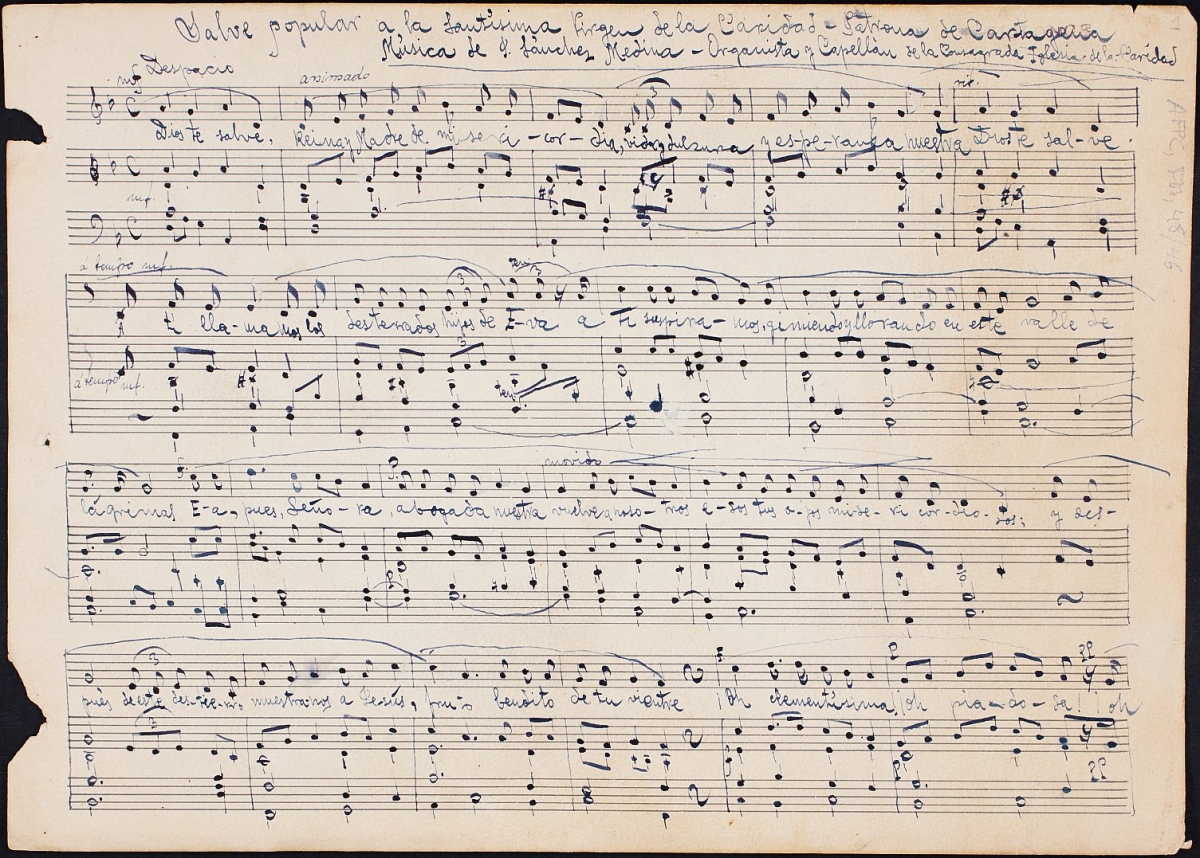 Salve popular a la Santísima Virgen de la Caridad - Patrona de Cartagena
Música de S. Sánchez Medina - Organista y Capellán de la Consagrada Iglesia de la Caridad
mf Despacio animado rit.
Dios te salve, Reina y Madre de miseri-cor-dia, vida y dulzura y es-pe-ranza nuestra Dios te sal-ve.
mf.
a tempo mf. ten.
A ti lla-ma-mos los desterados hijos de E-va a Ti suspira-mos, gimiendo y llorando en este valle de
a tempo mf.
ten.
movido
lágrimas E-a, pues, Seño-ra, abogada nuestra vuelve a noso-tros e-sos tus o-jos mi-se-ri-cor-dio-sos; y des-
pués de este des-tie-rro muestranos a Jesús, fru-to bendito de tu vientre ¡Oh clementísima! ¡oh pia-do-sa! ¡oh